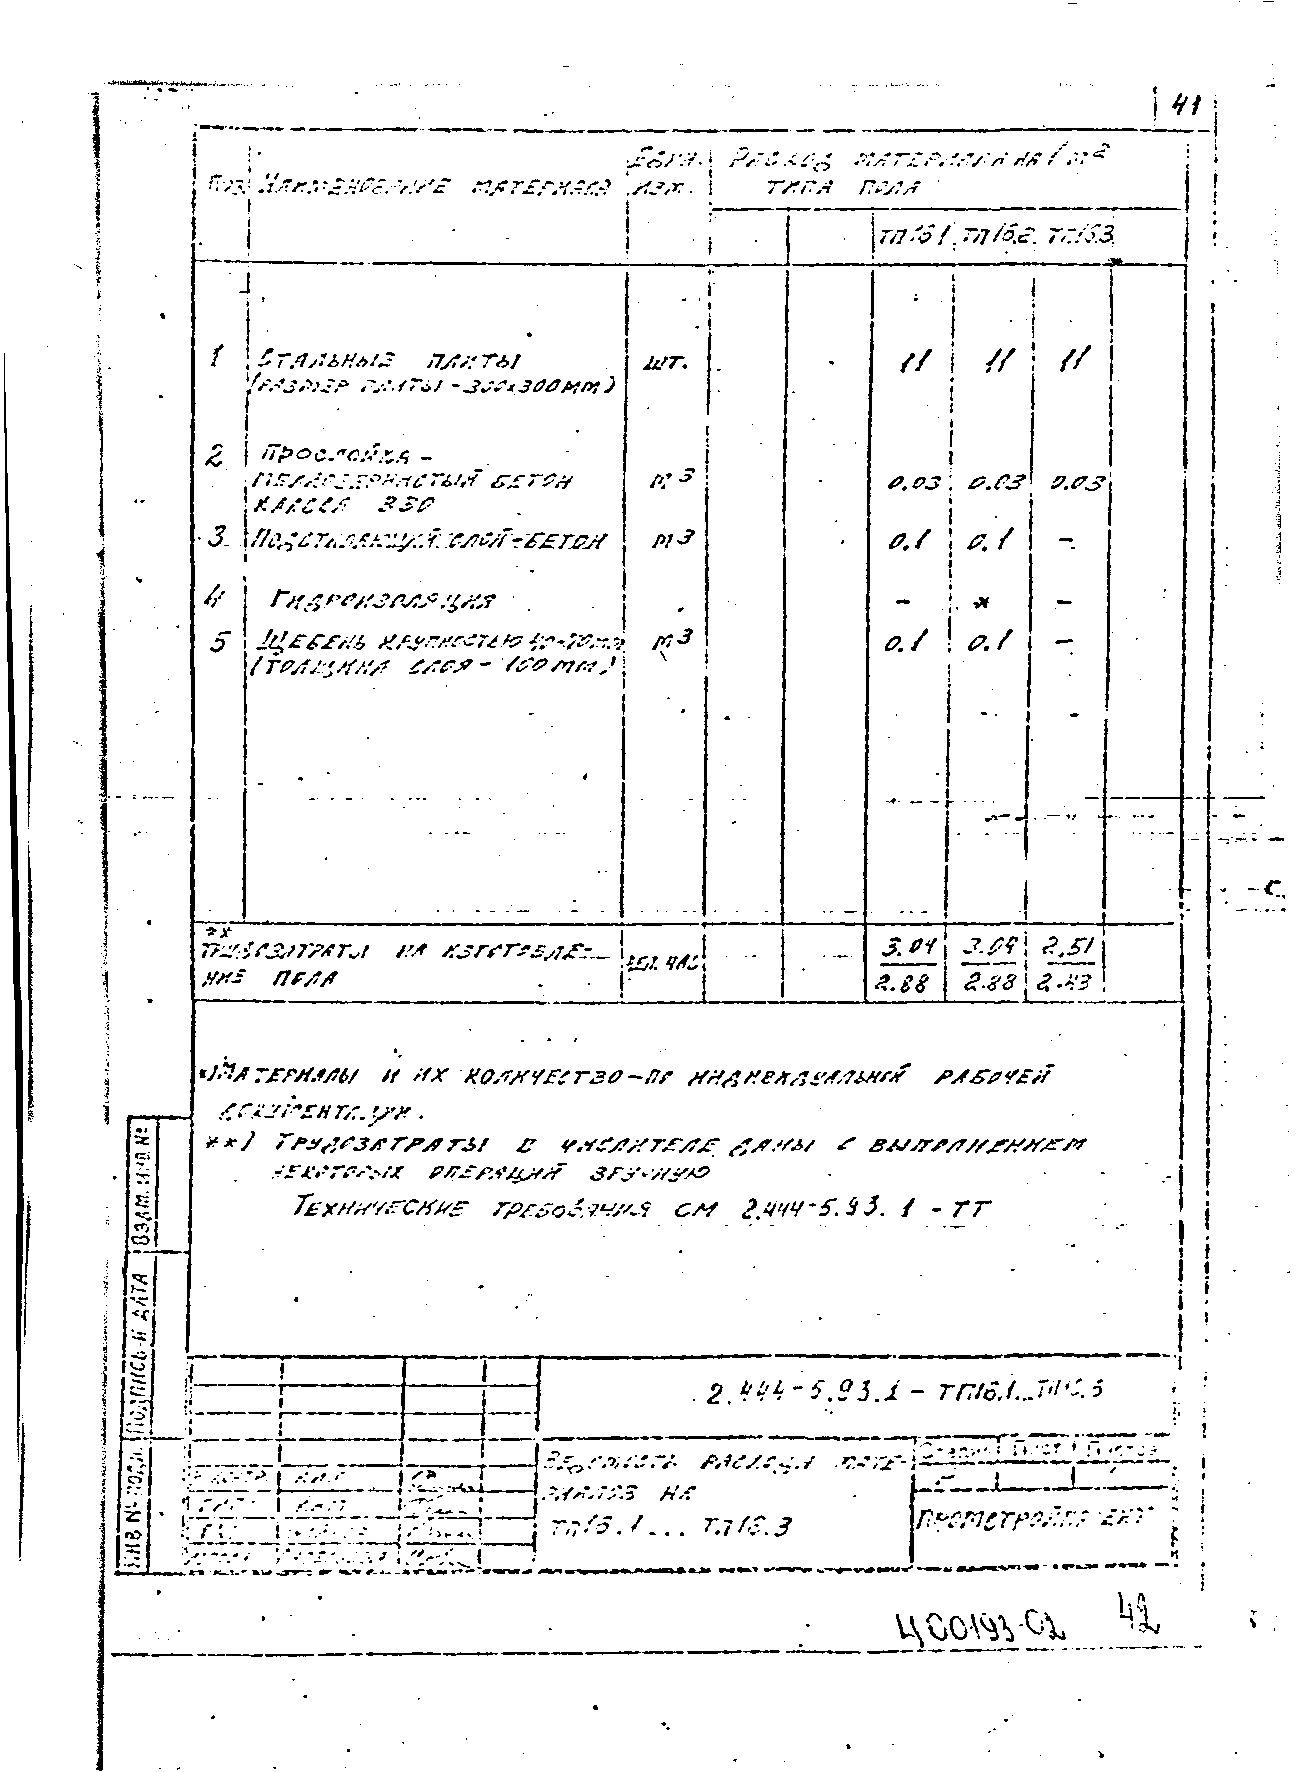 41
Поз Наименование материала Един. изм. Расход материала на 1 м2
типа пола
ТП16.1 ТП16.2 ТП16.3
1 Стальные плиты шт. 11 11 11
(размер плиты - 300х300мм)
2 Прослойка -
мелкозернистый бетон м3 0.03 0.03 0.03
класса В30
3 Подстилающий слой - бетон м3 0.1 0.1 -
4 Гидроизоляция - * -
5 Щебень крупностью 40-70мм м3 0.1 0.1 -
(толщина слоя - 100 мм)
**
Трудозатраты на изготовле- чел.час 3.04 3.04 2.51
ние пола 2.88 2.88 2.43
*) Материалы и их количество - по индивидуальной рабочей
документации.
**) Трудозатраты в числителе даны с выполнением
некоторых операций вручную
Технические требования см 2.444-5.93.1 - ТТ
Взам. инв. №
Подпись и дата
Инв № подл.
2.444-5.93.1 - ТП16.1...ТП16.3
Ведомость расхода мате-
риалов на
ТП16.1... ТП16.3
Стадия Лист Листов
Промстройпроект
Ц00193-02 42